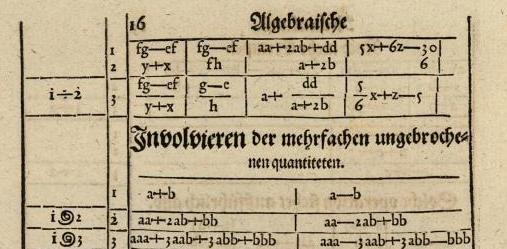 16 Algebraische
1 fg—ef fg—ef aa+2ab+dd 5x+6z—30
2 y+x fh a+2b 6
i÷2 3 fg—ef/y+x g—e/h a+ dd/a+2b 5/6 x+z—5
Involvieren der mehrfachen ungebroche=
nen quantiteten.
1 a+b a—b
i 2 2 aa+2ab+bb aa—2ab+bb
i 3 3 aaa+3aab+3abb+bbb aaa—3aab+3abb—bbb